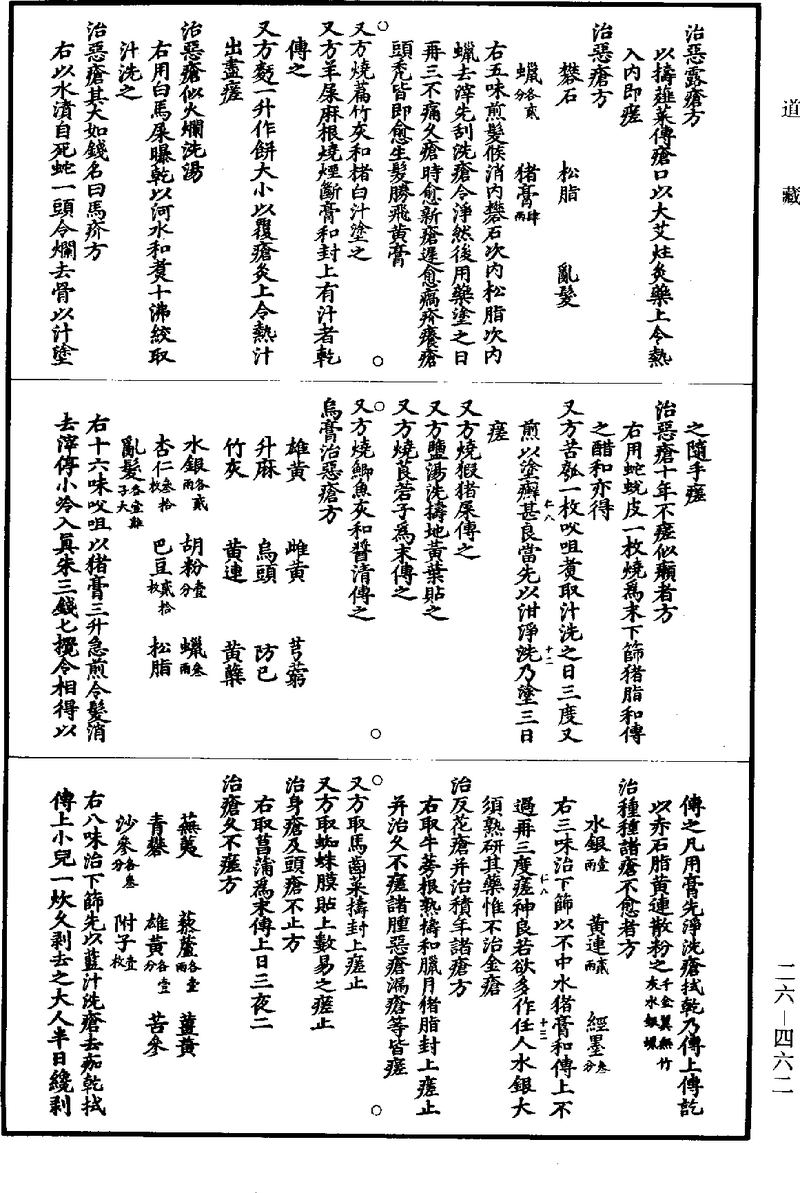 道藏
治惡露瘡方
以擣薤菜傅瘡口以大艾炷灸藥上令熱
入內即瘥
治惡瘡方
礬石 松脂 亂髮
蠟各貳分 猪膏肆兩
右五味煎髮候消內礬石次內松脂次內
蠟去滓先刮洗瘡令淨然後用藥塗之日
再三不痛久瘡時愈新瘡遲愈瘑疥癢瘡
頭禿皆即愈生髮勝飛黃膏
又方燒萹竹灰和楮白汁塗之
又方羊屎麻根燒煙斷膏和封上有汁者乾
傅之
又方麪一升作餅大小以覆瘡灸上令熱汁
出盡瘥
治惡瘡似火爛洗湯
右用白馬屎曝乾以河水和煑十沸絞取
汁洗之
治惡瘡其大如錢名曰馬疥方
右以水漬自死蛇一頭令爛去骨以汁塗
之隨手瘥
治惡瘡十年不瘥似癩者方
右用蛇蛻皮一枚燒爲末下篩猪脂和傅
之醋和亦得
又方苦瓠一枚㕮咀煑取汁洗之日三度又
煎以塗癬甚良當先以泔淨洗乃塗三日
瘥
又方燒猳猪屎傅之
又方鹽湯洗擣地黃葉貼之
又方燒莨菪子爲末傅之
又方燒鯽魚灰和醬清傅之
烏膏治惡瘡方
雄黃 雌黃 芎藭
升麻 烏頭 防己
竹灰 黃連 黃蘗
水銀各貳兩 胡粉壹分 蠟叁兩
杏仁叁拾枚 巴豆貳拾枚 松脂
亂髮各壹雞子大
右十六味㕮咀以猪膏三升急煎令髮消
去滓停小冷入眞朱三錢七攪令相得以
傅之凡用膏先淨洗瘡拭乾乃傅上傅訖
以赤石脂黃連散粉之千金翼無竹灰水銀蠟
治種種諸瘡不愈者方
水銀壹兩 黃連貳兩 經墨叁分
右三味治下篩以不中水猪膏和傅上不
過再三度瘥神良若欲多作任人水銀大
須熟研其藥惟不治金瘡
治反花瘡并治積年諸瘡方
右取牛蒡根熟擣和臘月猪脂封上瘥止
并治久不瘥諸腫惡瘡漏瘡等皆瘥
又方取馬齒菜擣封上瘥止
又方取蜘蛛膜貼上數易之瘥止
治身瘡及頭瘡不止方
右取菖蒲爲末傅上日三夜二
治瘡久不瘥方
蕪荑 藜蘆各壹兩 薑黃
青礬 雄黃各壹分 苦參
沙參各叁分 附子壹枚
右八味治下篩先以藍汁洗瘡去痂乾拭
傅上小兒一炊久剥去之大人半日纔剥
二六—四六二